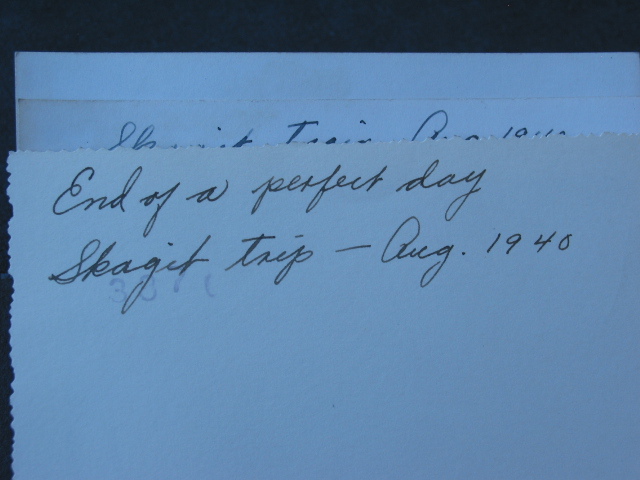 Skagit Trip Aug 1940
End of a perfect day
Skagit trip — Aug. 1940